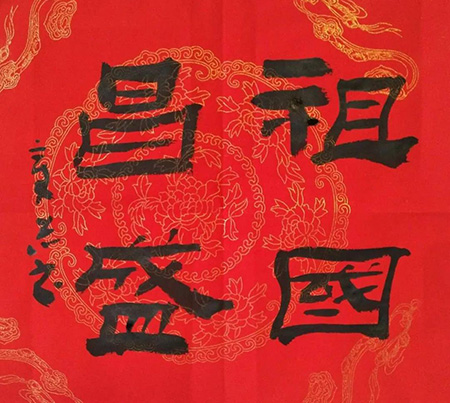 祖國
昌盛